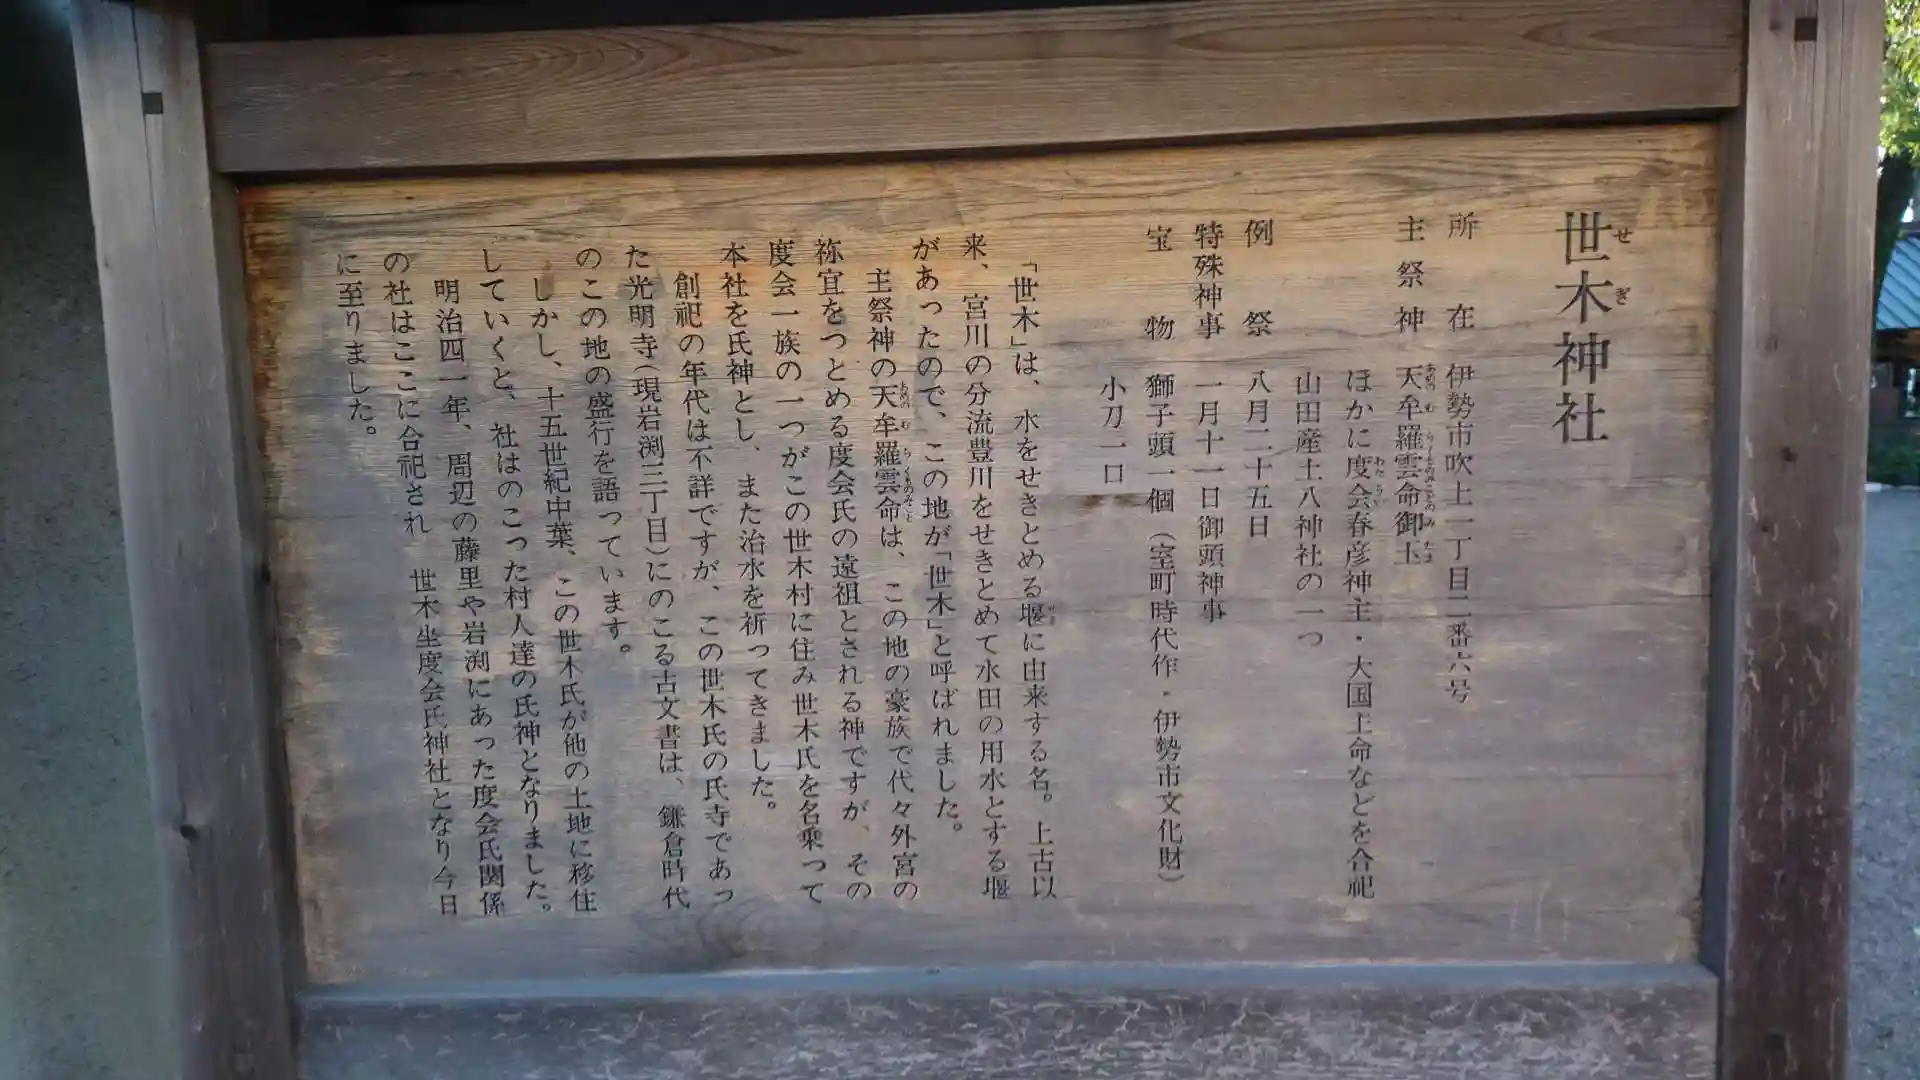 世木神社
所在 伊勢市吹上一丁目二番六号
主祭神 天牟羅雲命御玉
ほかに度会春彦神主・大国主命などを合祀
山田産土八神社の一つ
例祭 八月二十五日
特殊神事 一月十一日御頭神事
宝物 獅子頭一個(室町時代作・伊勢市文化財)
小刀一口
「世木」は、水をせきとめる堰に由来する名。上古以
来、宮川の分流豊川をせきとめて水田の用水とする堰
があったので、この地が「世木」と呼ばれました。
主祭神の天牟羅雲命は、この地の豪族で代々外宮の
祢宜をつとめる度会氏の遠祖とされる神ですが、その
度会一族の一つがこの世木村に住み世木氏を名乗って
本社を氏神とし、また治水を祈ってきました。
創祀の年代は不詳ですが、この世木氏の氏寺であっ
た光明寺(現岩渕三丁目)にのこる古文書は、鎌倉時代
のこの地の盛行を語っています。
しかし、十五世紀中葉、この世木氏が他の土地に移住
していくと、社はのこった村人達の氏神となりました。
明治四一年、周辺の藤里や岩渕にあった度会氏関係
の社はここに合祀され 世木坐度会氏神社となり今日
に至りました。